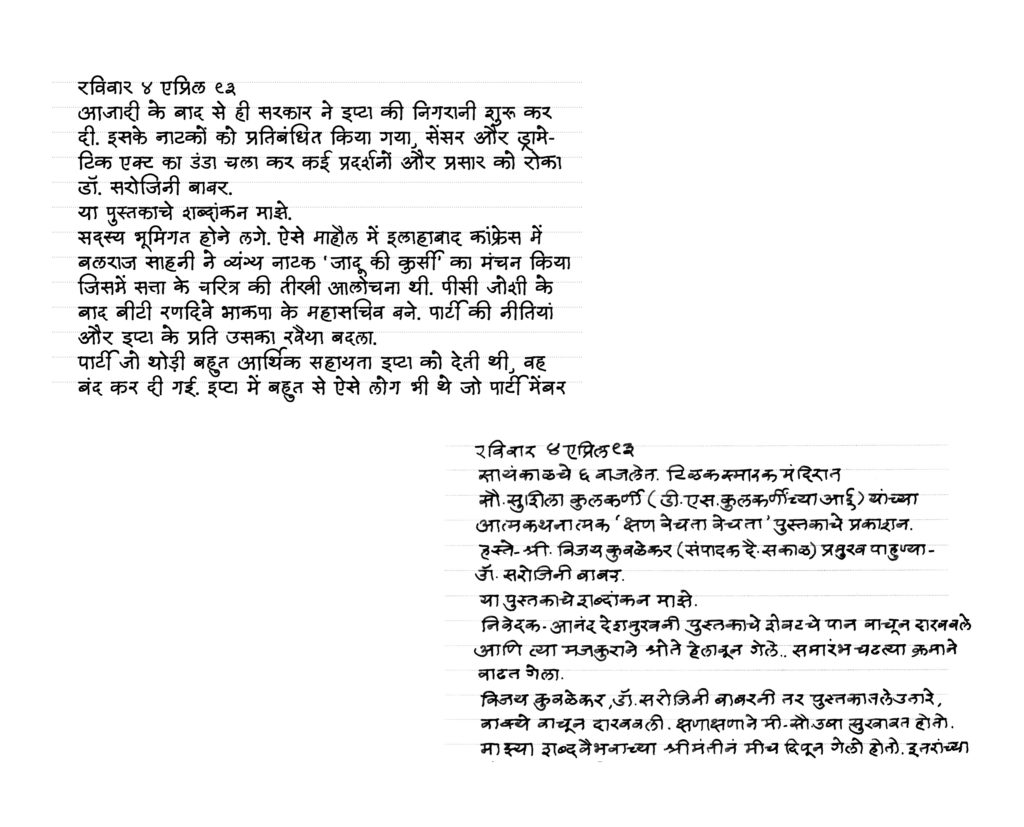 रविवार ४ एप्रिल ९३
आजादी के बाद से ही सरकार ने इप्टा की निगरानी शुरू कर
दी. इसके नाटकों को प्रतिबंधित किया गया, सेंसर और ड्रामे-
टिक एक्ट का डंडा चला कर कई प्रदर्शनों और प्रसार को रोका
डॉ. सरोजिनी बाबर.
या पुस्तकाचे शब्दांकन माझे.
सदस्य भूमिगत होने लगे. ऐसे माहौल में इलाहाबाद कांफ्रेस में
बलराज साहनी ने व्यंग्य नाटक 'जादू की कुर्सी' का मंचन किया
जिसमें सत्ता के चरित्र की तीखी आलोचना थी. पीसी जोशी के
बाद बीटी रणदिवे भाकपा के महासचिव बने. पार्टी की नीतियां
और इप्टा के प्रति उसका रवैया बदला.
पार्टी जो थोड़ी बहुत आर्थिक सहायता इप्टा को देती थी, वह
बंद कर दी गई. इप्टा में बहुत से ऐसे लोग भी थे जो पार्टी मेंबर
रविवार ४ एप्रिल ९३
सायंकाळचे ६ वाजलेत. टिळक स्मारक मंदिरात
सौ. सुशिला कुलकर्णी (डी.एस.कुलकर्णीच्या आई) यांच्या
आत्मकथनात्मक 'क्षण वेचता वेचता' पुस्तकाचे प्रकाशन.
हस्ते- श्री. विजय कुवळेकर (संपादक दै. सकाळ) प्रमुख पाहुण्या-
डॉ. सरोजिनी बाबर.
या पुस्तकाचे शब्दांकन माझे.
निवेदक- आनंद देशमुखनी पुस्तकाचे शेवटचे पान वाचून दाखवले
आणि त्या मजकुराने श्रोते हेलावून गेले.. समारंभ चढत्या क्रमाने
वाढत गेला.
विजय कुवळेकर, डॉ. सरोजिनी बाबरनी तर पुस्तकातले उतारे,
वाक्ये वाचून दाखवली. क्षणाक्षणाने मी-सौ उषा सुखावत होतो.
माझ्या शब्दवैभवाच्या श्रीमंतीनं मीच दिपून गेलो होतो. इतरांच्या